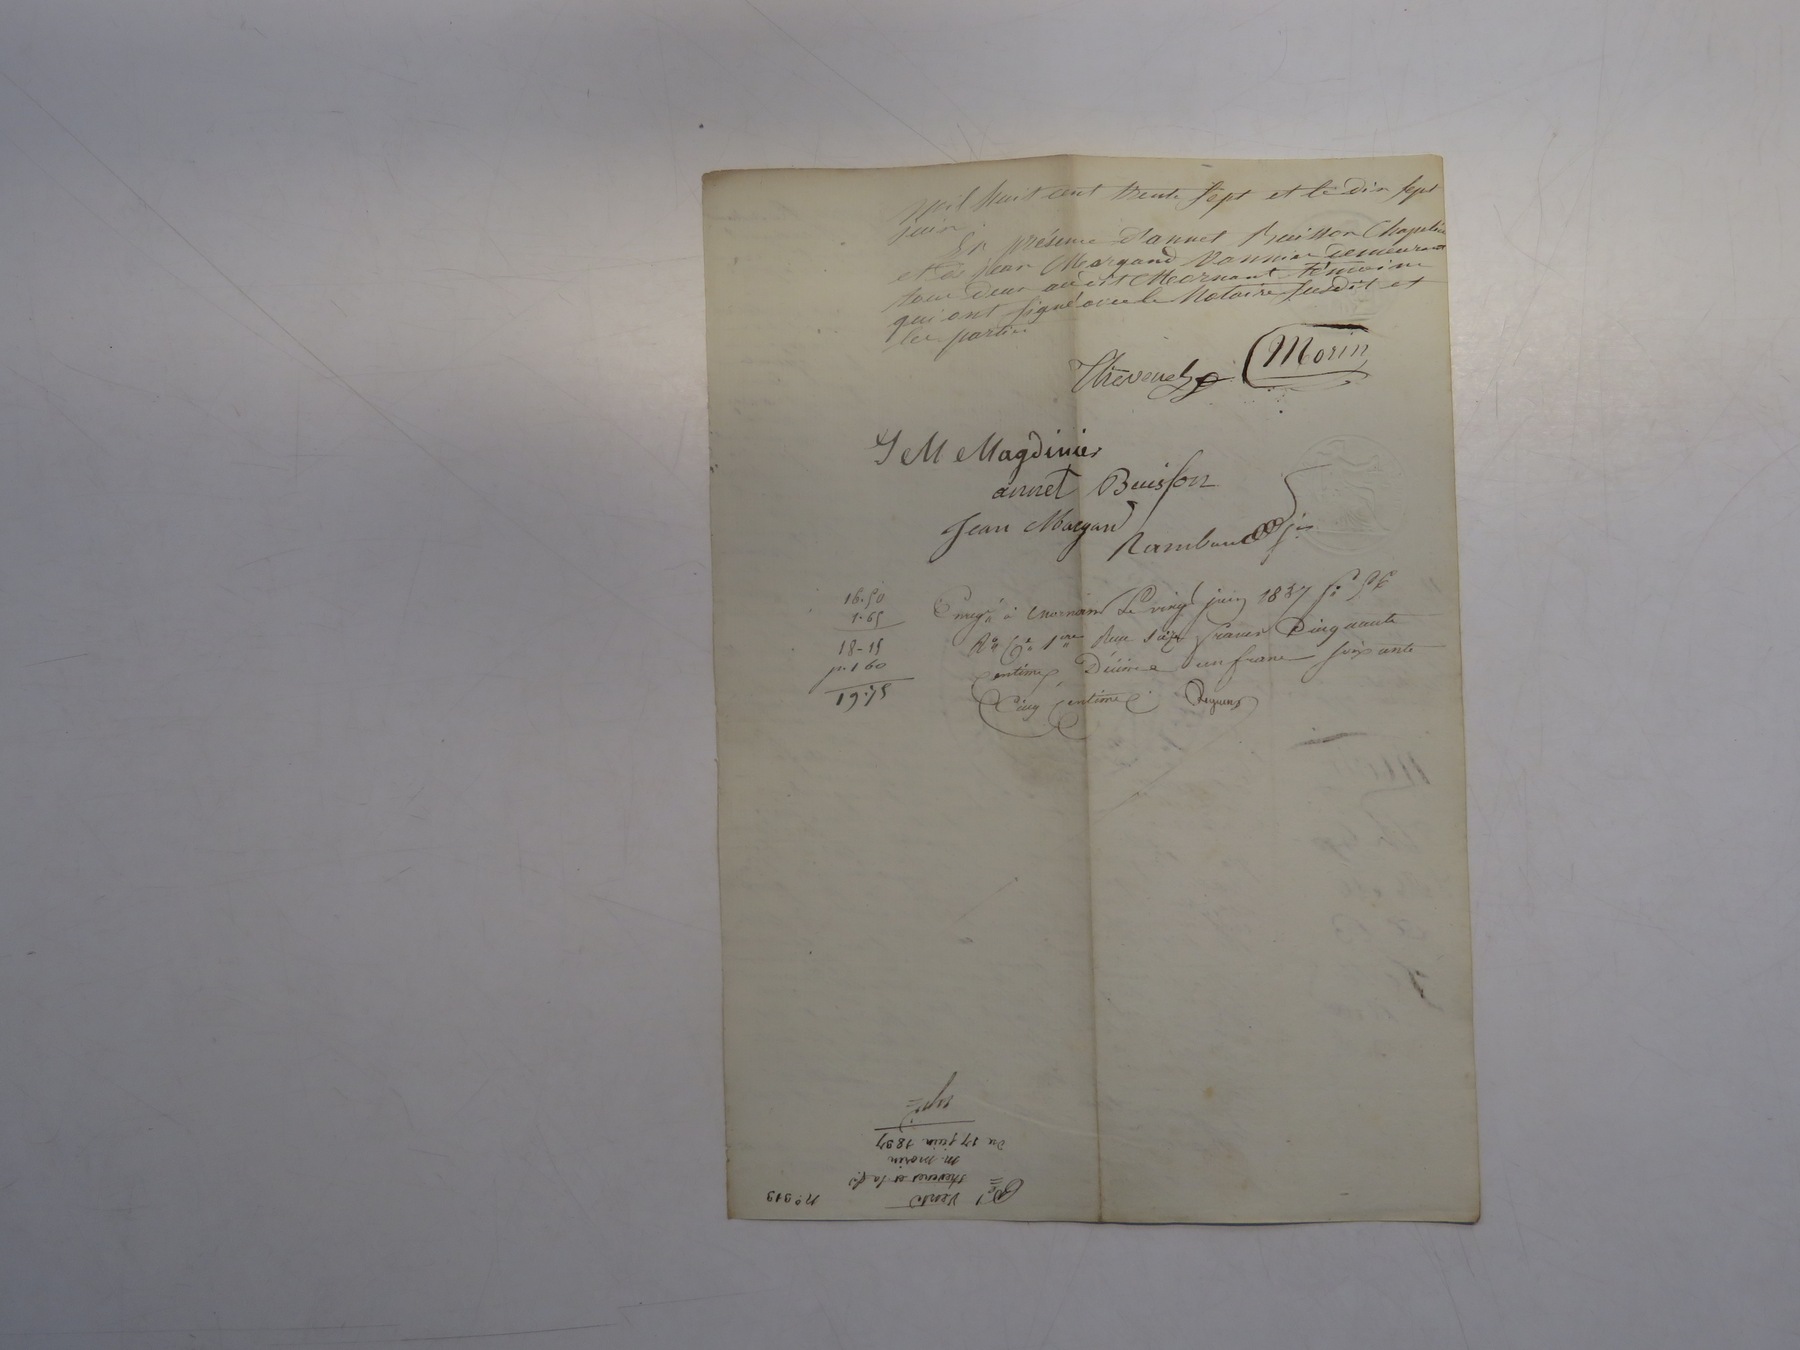 mil huit cent trente sept et le dix sept
juin.
En présence d'annet Buisson Chapelier
et de jean Margand Vannier demeurant
tous deux audit Mornant témoins
qui ont signé avec le Notaire susdit et
les parties
Thevenet Morin
J M Magdinier
annet Buisson
Jean Margand
Rambaud
16.50
1.65
18-15
1 60
19.75
Enregé à Mornant le vingt juin 1837 fo
Ro Ce 1re Reçu seize francs Cinquante
centimes, Décime un franc soixante
Cinq centimes.
no. 919
Vente
thevenet et la
M. morin
du 17 juin 1837